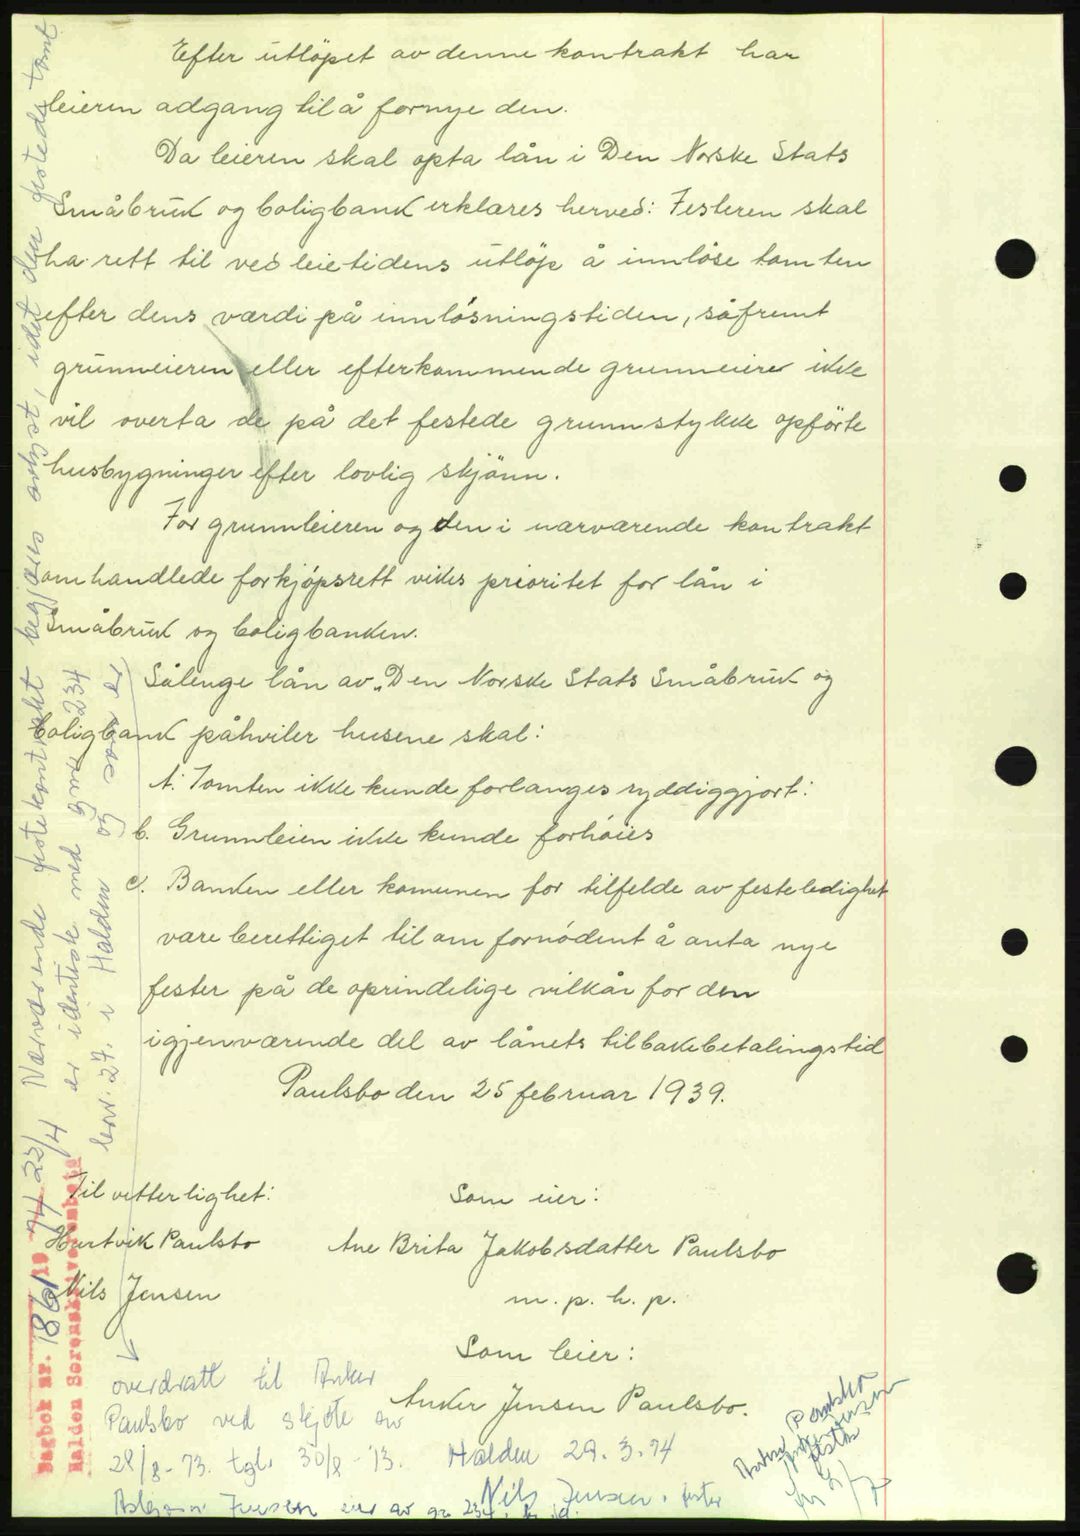 Efter utløpet av denne kontrakt har
leieren adgang til å fornye den.
Da leieren skal opta lån i Den Norske Stats
Småbruk og boligbank erklæres herved: Festeren skal
ha rett til ved leietidens utløp å innløse tomten
efter dens værdi på innløsningstiden, såfremt
grunneieren eller efterkommende grunneier ikke
vil overta de på det festede grunnstykke opførte
husbygninger efter lovlig skjønn.
For grunnleieren og den i nærværende kontrakt
omhandlede forkjøpsrett vikes prioritet for lån i
Småbruk og boligbanken.
Sålenge lån av „Den Norske Stats Småbruk og
boligbank påhviler husene skal:
A. Tomten ikke kunde forlanges ryddiggjort:
b. Grunnleien ikke kunde forhøies
c. Banken eller komunen for tilfelde av festeledighet
være berettiget til om fornødent å anta nye
fester på de oprindelige vilkår for den
igjenværende del av lånets tilbakebetalingstid
Paulsbo den 25 februar 1939.
Til vitterlighet:
Hartvik Paulsbo
Nils Jensen
Som eier:
Ane Brita Jakobsdatter Paulsbo
m. p. h. p.
Som leier:
Anker Jensen Paulsbo.
Nærværende festekontrakt begjæres avlyst, idet den festede tomt
er identisk med gnr 234
bnr. 27. i Halden og som er
overdratt til Anker
Paulsbo ved skjøte av
28/8-73. tgl. 30/8-73.
Halden 29.3.74
Nils Jensen, fester
Jensen eier av gn 234
Dagbok nr. 1861 19 74 23/4
Halden Sorenskriverembete
Paulsbo